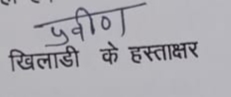 प्रवीण
खिलाडी के हस्ताक्षर